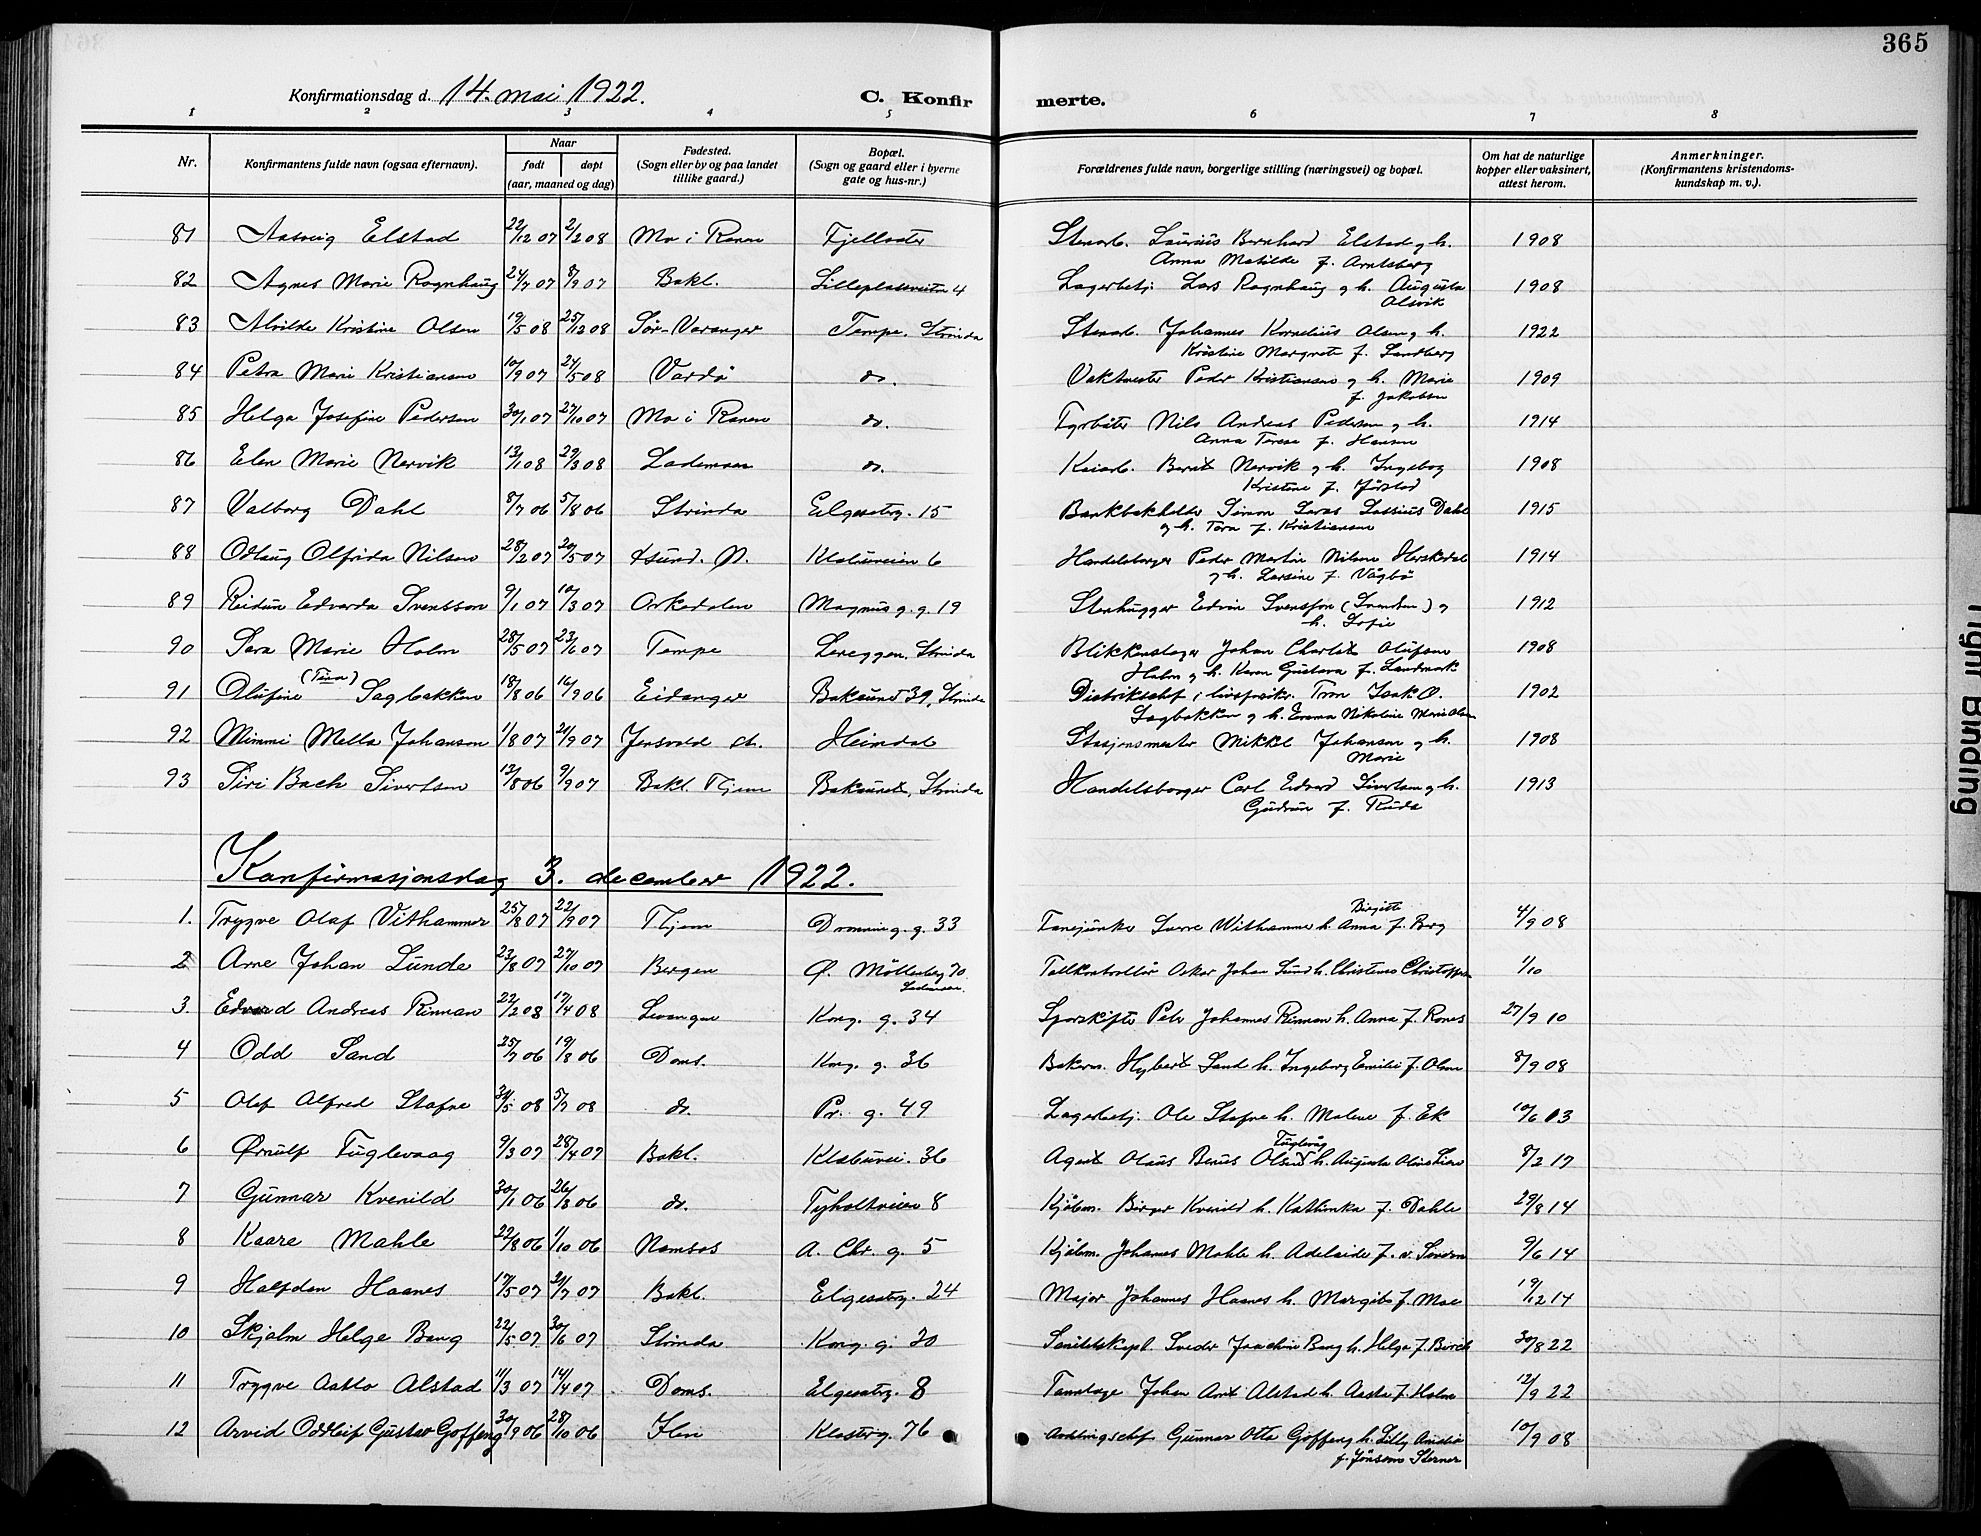 365
Konfirmationsdag d. 14. mai 1922.
C. Konfirmerte.
1 2 3 4 5 6 7 8
Nr.
Konfirmantens fulde navn (ogsaa efternavn).
Naar
født
døpt
(aar, maaned og dag)
Fødested.
(Sogn eller by og paa landet
tillike gaard.)
Bopæl.
(Sogn og gaard eller i byerne
gate og hus-nr.)
Forældrenes fulde navn, borgerlige stilling (næringsvei) og bopæl.
Om hat de naturlige
kopper eller vaksinert,
attest herom.
Anmerkninger.
(Konfirmantens kristendoms-
kundskap m. v.).
81 Aasvig Elstad 22/12 07 2/2 08 Mo i Ranen Fjellseter Stenarb. Laurius Bernhard Elstad g h. 1908
Anna Matilde f. Arntsberg
82 Agnes Marie Rognhaug 24/7 07 8/9 07 Bakl. 4 Lagerbetj. Lars Rognhaug g h. Augusta 1908
Olsvik
83 Alvilde Kristine Olsen 19/5 08 25/12 08 Sør-Varanger Tempe, Strinda Stenarb. Johannes Kornelius Olsen g h. 1922
Kristine Margrete f. Sandberg
84 Petra Marie Kristiansen 10/9 07 24/5 08 Vardø do. Vaktmester Peder Kristiansen g h. Marie 1909
f. Jakobsen
85 Helga Josefine Pedersen 30/1 07 27/10 07 Mo i Ranen do. Fyrbøter Nils Andreas Pedersen g h. 1914
Anna Terese f. Hansen
86 Elen Marie Nervik 13/1 08 29/3 08 Lademoen do. Kaiarb. Bernt Nervik g h. Ingeborg 1908
Kristine f. Jørstad
87 Valborg Dahl 8/7 06 5/8 06 Strinda Elgesetrg. 15 Bankbokholder Simon Dahl 1915
g h. Tora f. Kristiansen
88 Odlaug Olfrida Nilsen 28/2 07 20/5 07 Ksund. N. Klæbuveien 6 Handelsborger Peder Martin Nilsen Herskedal 1914
g h. Larsine f. Vågbø
89 Reidun Edvarda Svensson 9/1 07 10/3 07 Orkedalen Magnus g. g. 19 Stenhugger Edvin Svensson (Svendsen) g 1912
h. Sofie
90 Sara Marie Holm 28/5 07 23/6 07 Tempe Lereggen, Strinda Blikkenslager Johan Charlot Olufsen 1908
Holm g h. Karen Gustava f. Landmark
91 Olufine (Tina) Sagbakken 18/8 06 16/9 06 Eidanger Baksund 39, Strinda Distriktschef i livsforsikr. Tron Isak O. 1902
Sagbakken g h. Emma Nikoline Marie Olsen
92 Mimmi Mella Johansen 1/8 07 21/9 07 Jensvold st. Heimdal Stasjonsmester Mikkel Johansen g h. 1908
Marie
93 Siri Bach Sivertsen 13/8 06 9/9 07 Bakl. Thjem Baksund, Strinda Handelsborger Carl Edvard Sivertsen g h. 1913
Gudrun f. Ruda
Konfirmasjonsdag 3. december 1922.
1. Trygve Olaf Vithammer 25/8 07 22/9 07 Thjem Dronning. g. 33 Withammer h. Anna Birgitte f. Berg 4/9 08
2 Arne Johan Lunde 23/8 07 27/10 07 Bergen Ø. Möllenberg 70 Tollkontrollør Oskar Johan Lund h. Christense 1/10
Lademoen.
3. Edvard Andreas Rinnan 22/2 08 17/4 08 Levanger Kong. g. 34 Sporskifter Peter Johannes Rinnan h. Anna f. Rones 27/9 10
4 Odd Sand 25/7 06 19/8 06 Doms. Kong. g. 36 Bakerm. Hybert Sand h. Ingeborg Emilie f. Olsen 8/9 08
5 Olaf Alfred Stafne 31/5 08 5/7 08 do. Pr. g. 49 Lagerbetj. Ole Stafne h. Malene f. Ek 10/6 03
6 Ørnulf Fuglevaag 9/3 07 28/4 07 Bakl. Klæbuvei. 36 Agent Olaus Benus Olsen Fuglevåg h. Augusta 8/2 17
7 Gunnar Kvenild 30/1 06 26/3 06 do. Tyholtveien 8 Kjøbm. Birger Kvenild h. Kathinka f. Dahle 29/8 14
8 Kaare Mahle 22/8 06 1/10 06 Namsos A. Chr. g. 5 Kjøbm. Johannes Mahle h. Adelaide f. v. 9/6 14
9 Halfdan Haanes 17/5 07 21/7 07 Bakl. Elgesetrg. 24 Major Johannes Haanes h. Margit f. Moe 19/12 14
10 Skjalm Helge Bang 22/5 07 30/6 07 Strinda Kong. g. 30 Sanitetskapt. Sveder Joachim Bang h. Helga f. Borch 30/8 22
11 Trygve Alstad 11/3 07 14/4 07 Doms. Elgesetrg. 8 Tannlæge Johan Arnt Alstad h. Aasta f. Holm 12/9 22
12 Arvid Oddleif Gustav Goffeng 30/9 06 28/10 06 Ilen Klosterg. 76 Avdelingschef Gunnar Otto Goffeng h. Lilly 10/9 08
f. Jönsson Sterner
Tight Binding